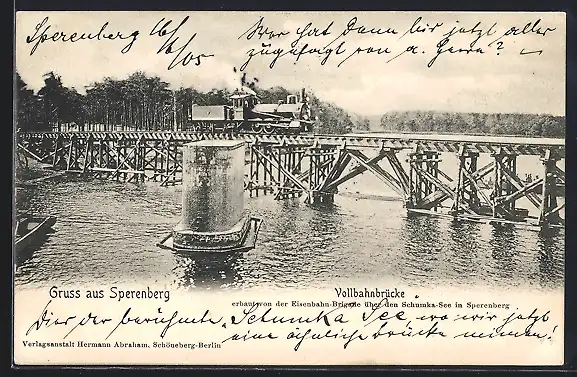 Sperenberg 16/5/05
Wer hat Dann bis jetzt aller
zugefagt von a. Gern?
Gruss aus Sperenberg
Vollbahnbrücke
erbaut von der Eisenbahn-Brigade über den Schumka-See in Sperenberg
Hier der berühmte „Schumka See, wo wir jetzt
eine ähnliche brücke
Verlagsanstalt Hermann Abraham, Schöneberg-Berlin